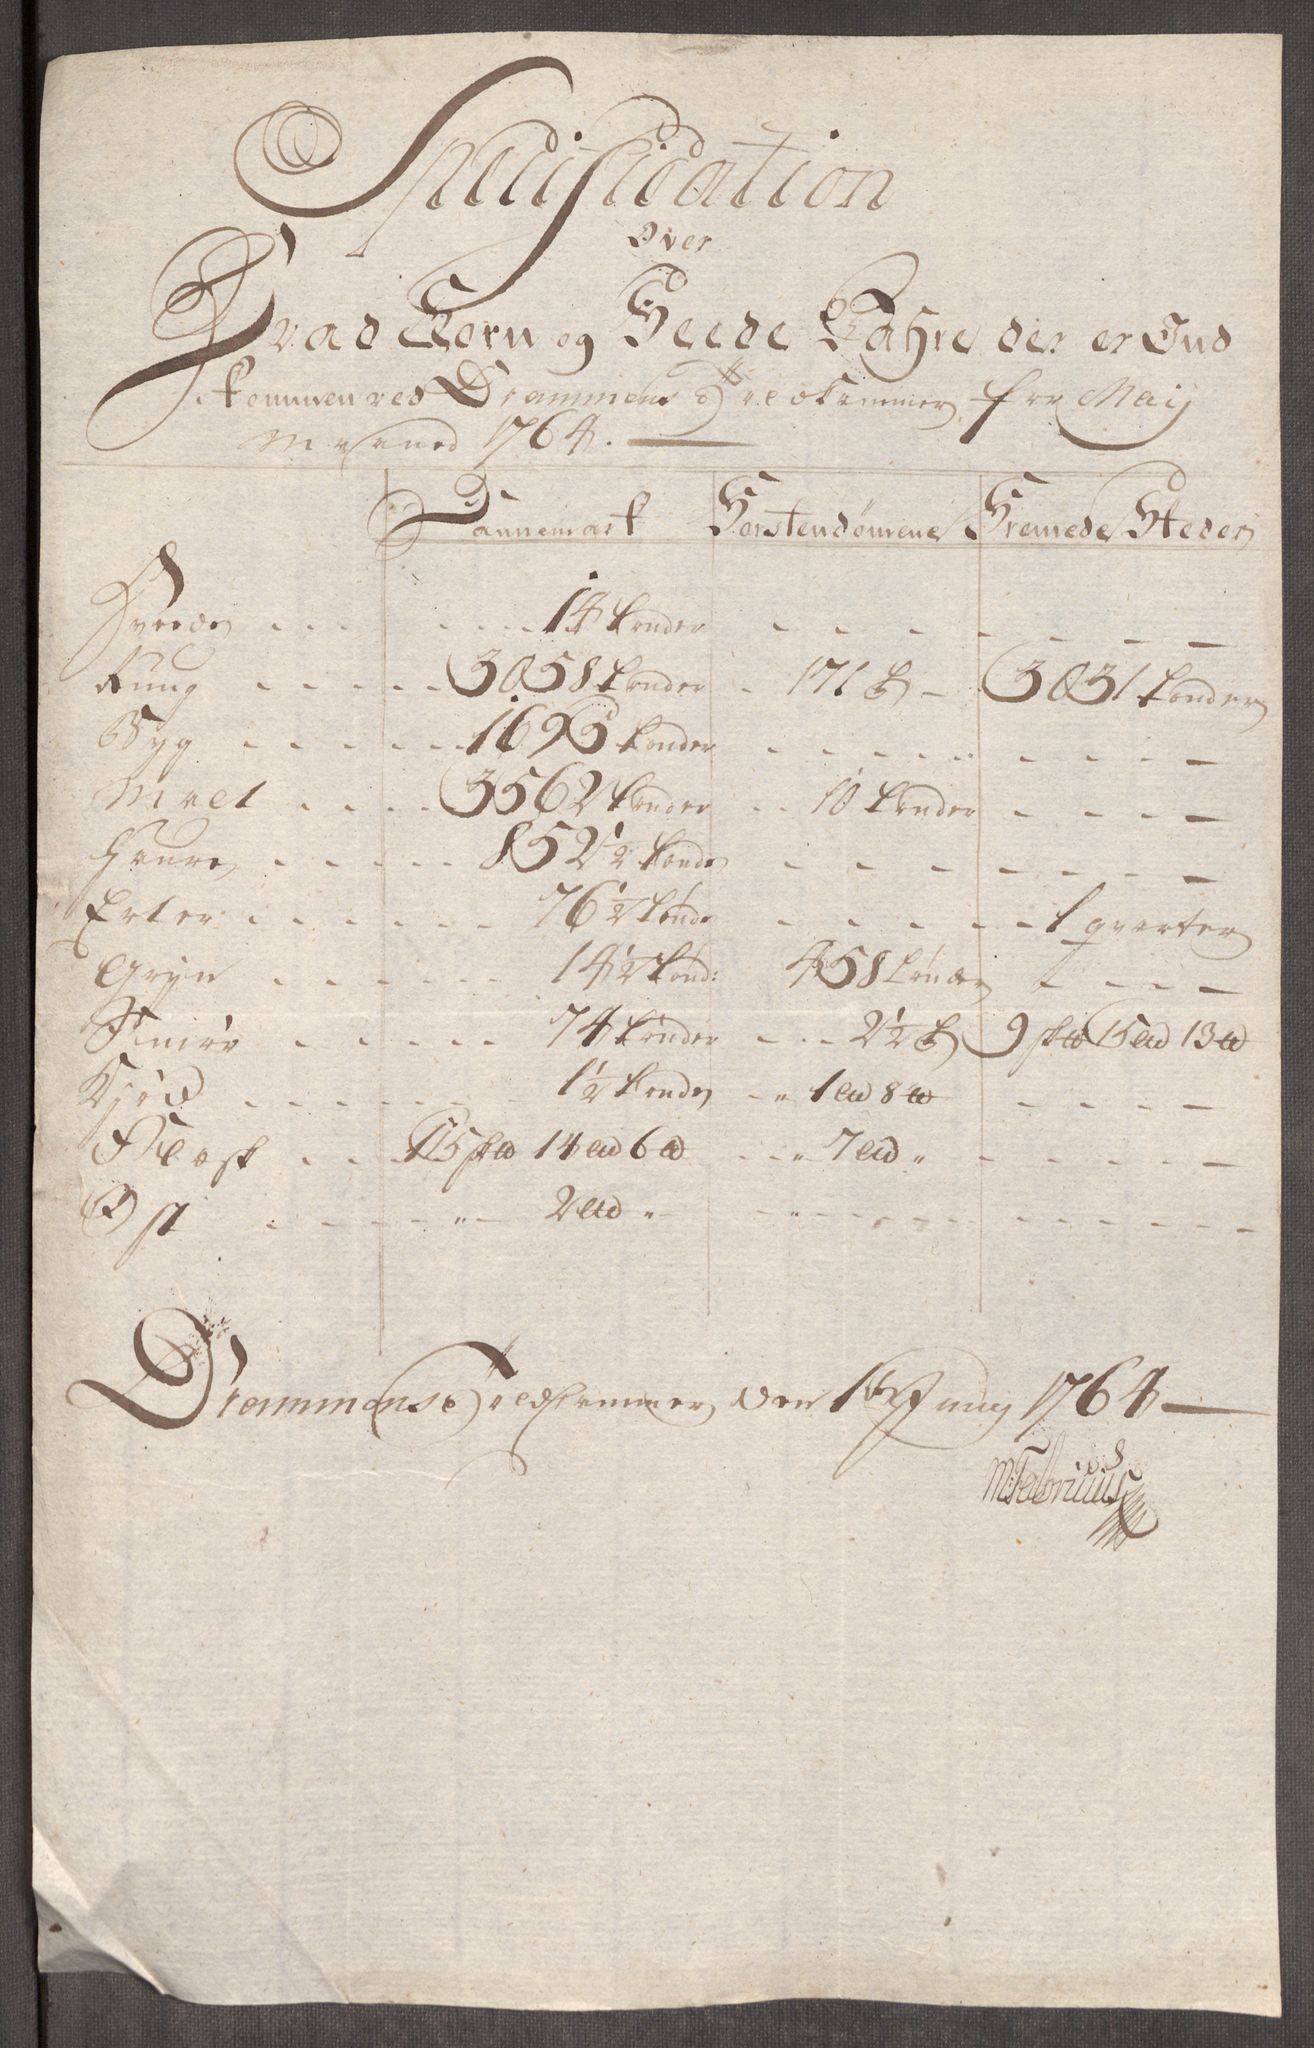 Specification
Over
Hvad Korn og Feede Vahre der er Ind
kommen ved Drammens Toldkammer fra Maij
Maaned 1764.
Dannemark Førstendømene Fremede Steder
Hvede 14 tønder
Rúug 3058 tønder 171 tr 3031 tønder
Byg 1695 tønder
Malt 3562 tønder 10 tønder
Havre 852 1/2 tønder
Erter 76 1/2 tønder 1 qvarter
Gryn 14 1/2 tønd: 458 tønder
Smør 74 tønder 2 1/2 tr 9 sk℔ 15 L℔ 13 ℔
Kjød 1 1/2 tønder " 1 L℔ 8 ℔
Flesk 15 sk℔ 14 L℔ 6 ℔ " 7 L℔ "
Ost " 2 L℔ " "
Drammens Toldkammer den 1 Juny 1764
M: Fabricius